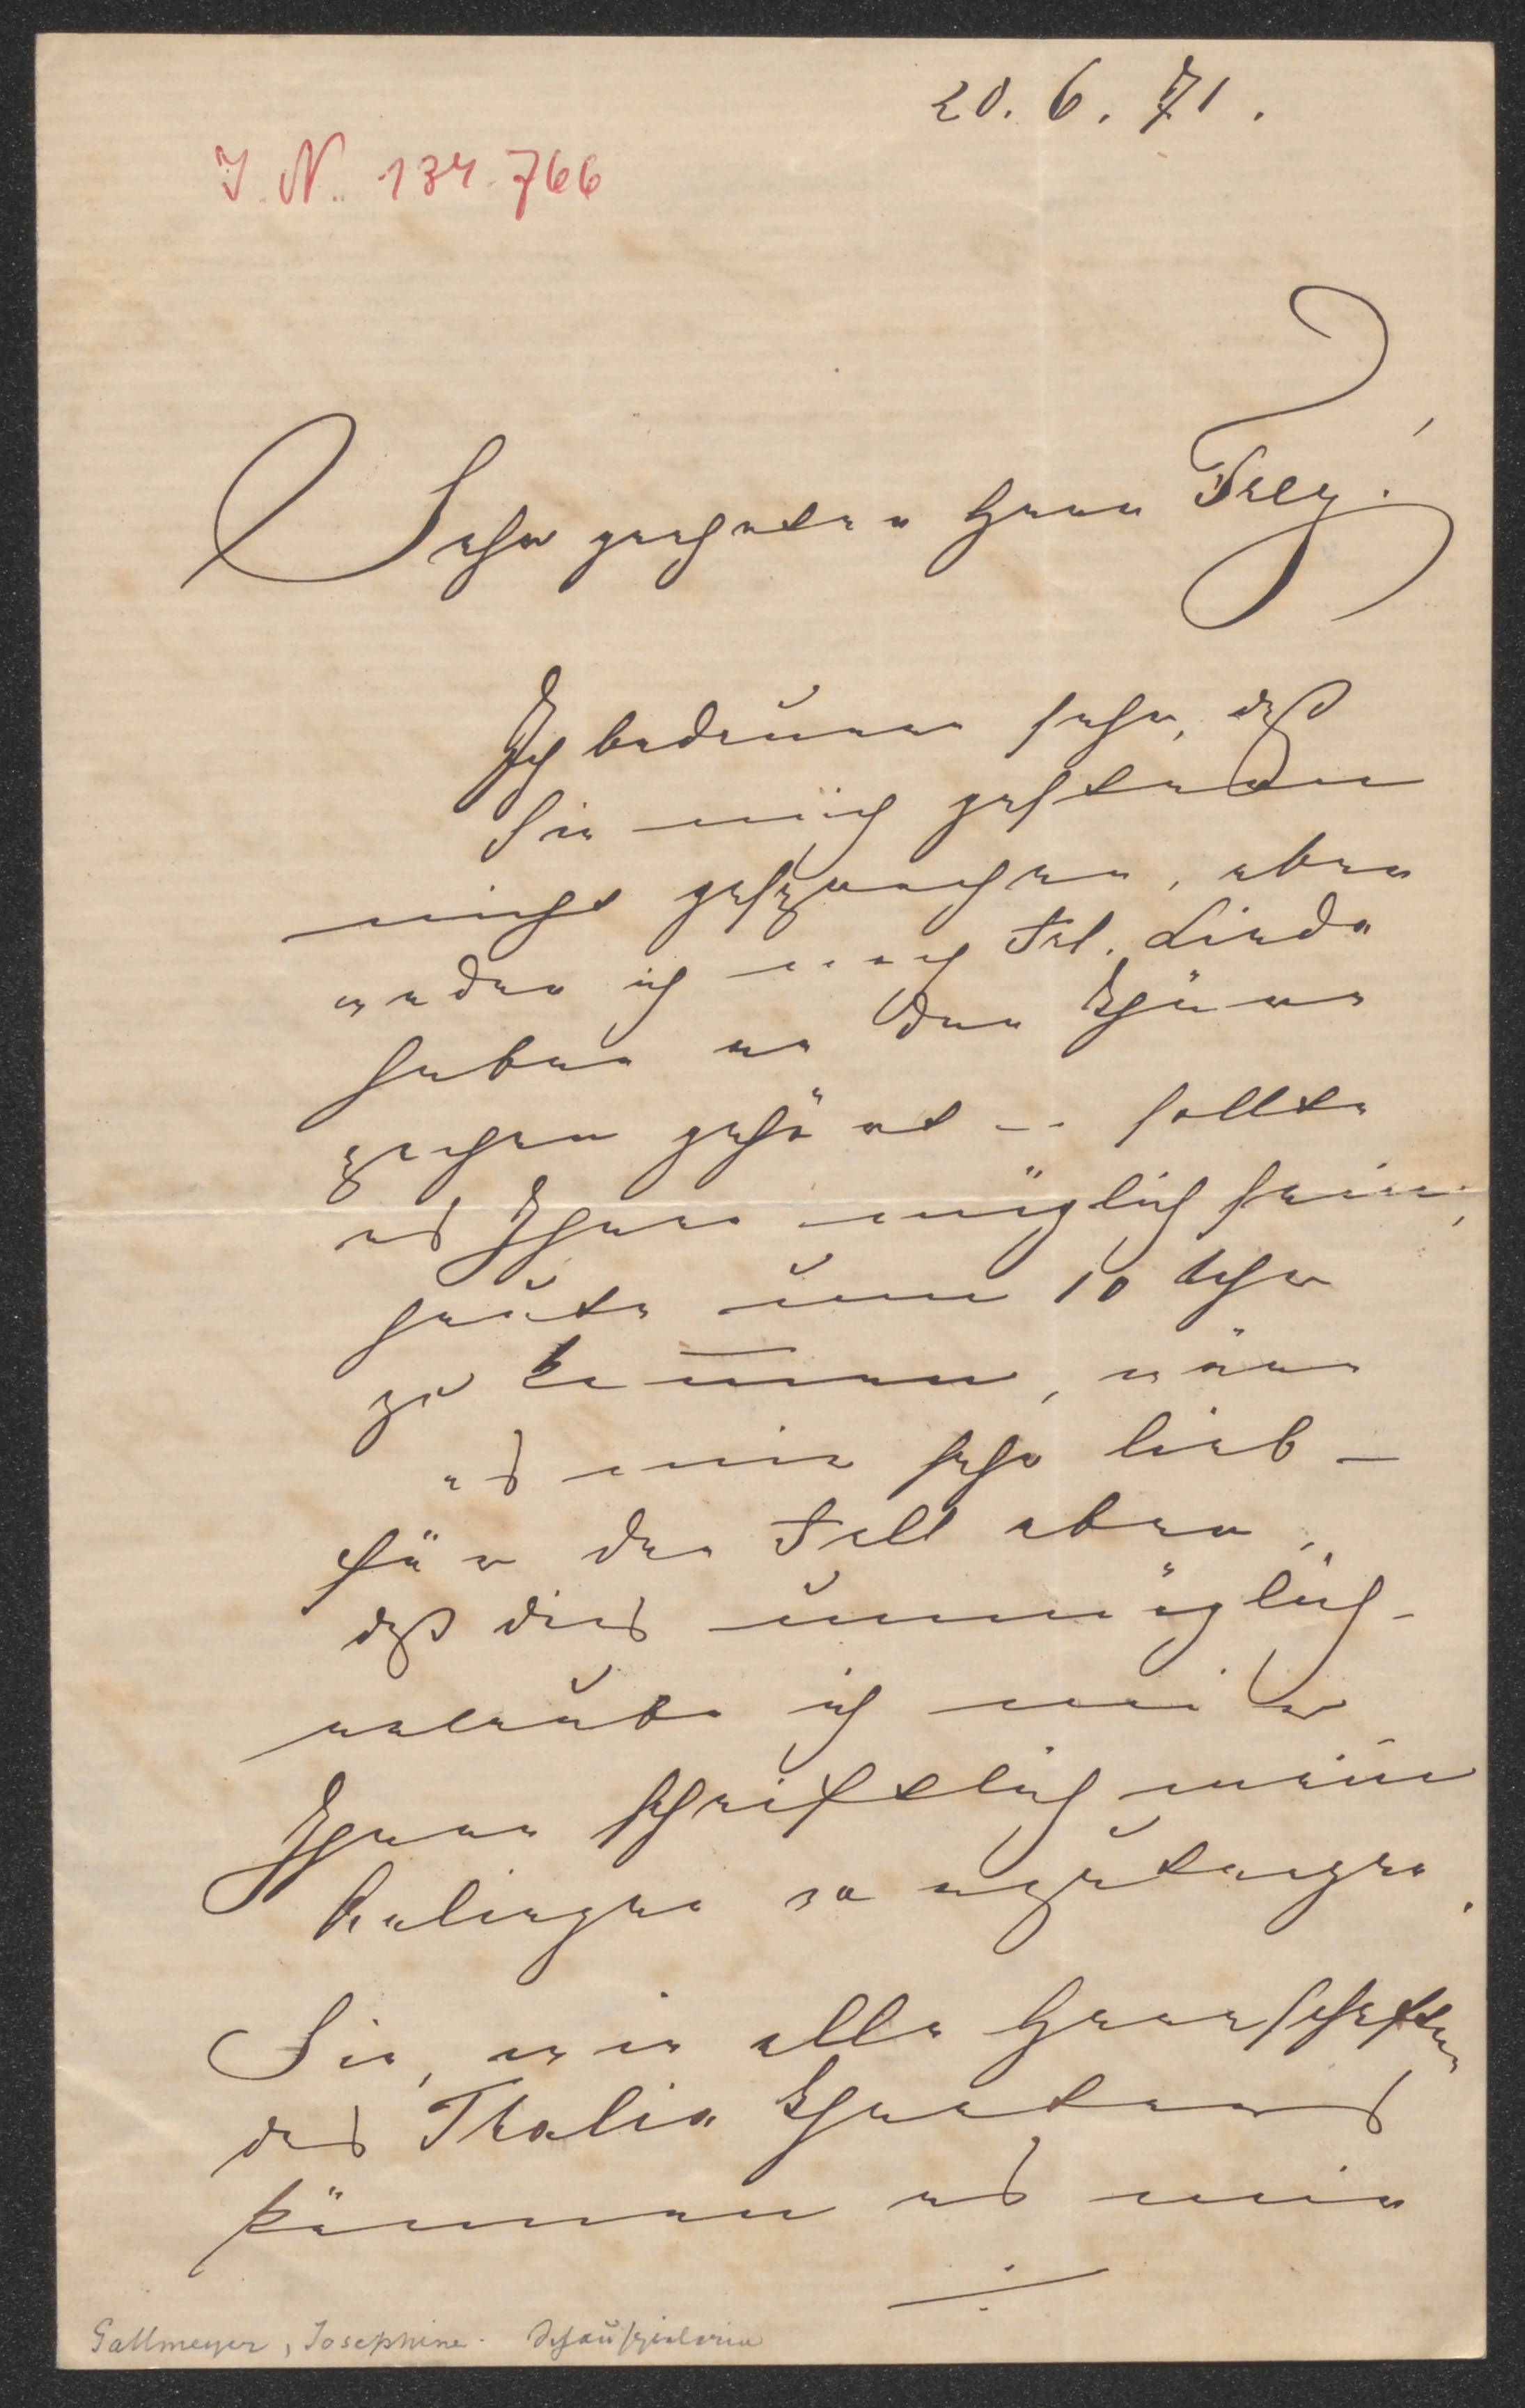 20. 6. 71.
I. N. 134.766
Sehr geehrter Herr Frey!
Ich bedauere sehr, daß
Sie mich gestern
nicht gesprochen, aber
weder ich noch Frl. Linda
haben an der Thüre
pochen gehört – sollte
es Ihnen möglich sein,
heute um 10 Uhr
zu kommen, wäre
es mir sehr lieb –
für den Fall aber,
daß dies unmöglich –
erlaube ich mir
Ihnen schriftlich mein
Anliegen
Sie, wie alle Herrschaften
des Thalia Theaters
können es mir
Gallmeyer, Josephine. Schauspielerin